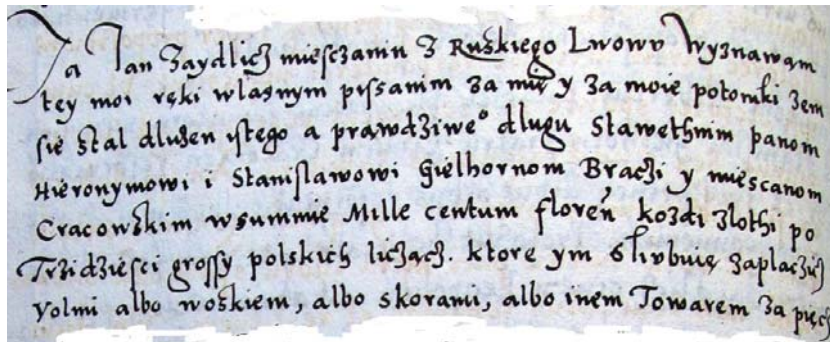 Ja Jan Zaydlicz miesczanin z Ruskiego Lwowv Wyznawąm
tey moi ręki wlasnym pissanim za mię y za moie potomki zem
się stal dlużen istego a prawdziwe° dlugu Slawethnim panom
Hieronymowi i Stanislawowi Gielhornom Braczi y miescanom
Cracowskim wsummie Mille centum floreń kozdi zlothi po
Trzidziesci grossy polskich licząch. ktore ym slvbuię zaplaczich
Yolmi albo woskiem, albo skorami, albo inem Towarem za pięch